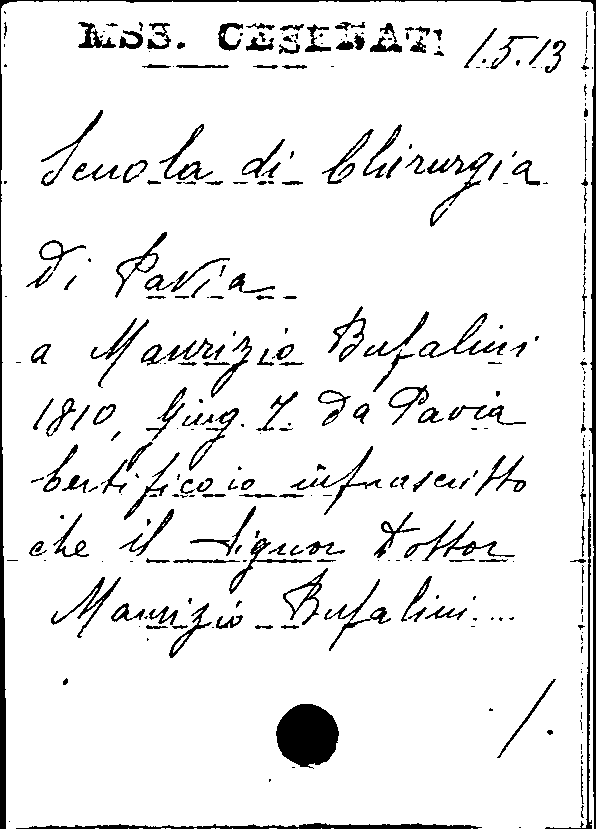 MSS. CESENATI 1.5.13
Scuola di Chirurgia
di Pavia
a Maurizio Bufalini
1810, Giug. 7. Da Pavia
Certifico io infrascritto
che il Signor Dottor
Maurizio Bufalini....
/.